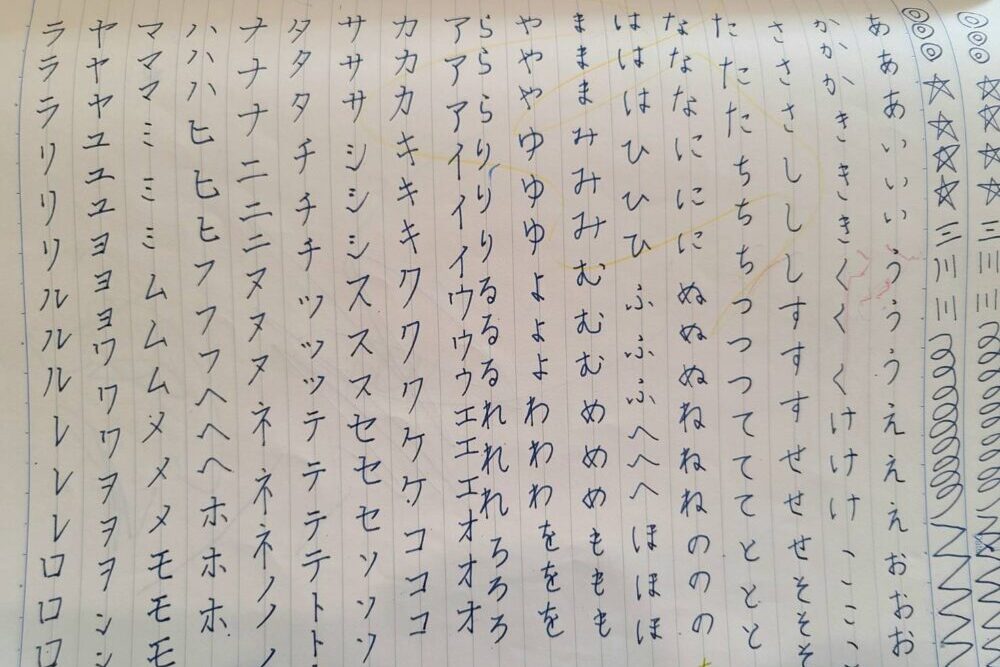 あああいいいうううえええおおお
かかかきききくくくけけけここ
さささしししすすすせせせそそそ
たたたちちちつつつてててととと
なななにににぬぬぬねねねののの
はははひひひふふふへへへほほほ
まままみみみむむむめめめももも
やややゆゆゆよよよわわわををを
らららりりりるるるれれれろろろ
アアアイイイウウウエエエオオオ
カカカキキキクククケケコココ
サササシシシスススセセセソソソ
タタタチチチツツツテテテテトト
ナナナニニニヌヌヌネネネノノノ
ハハハヒヒヒフフフヘヘヘホホホ
マママミミミムムムメメメモモモ
ヤヤヤユユユヨヨヨワワワヲヲヲンン
ラララリリリルルルレレレロロロ